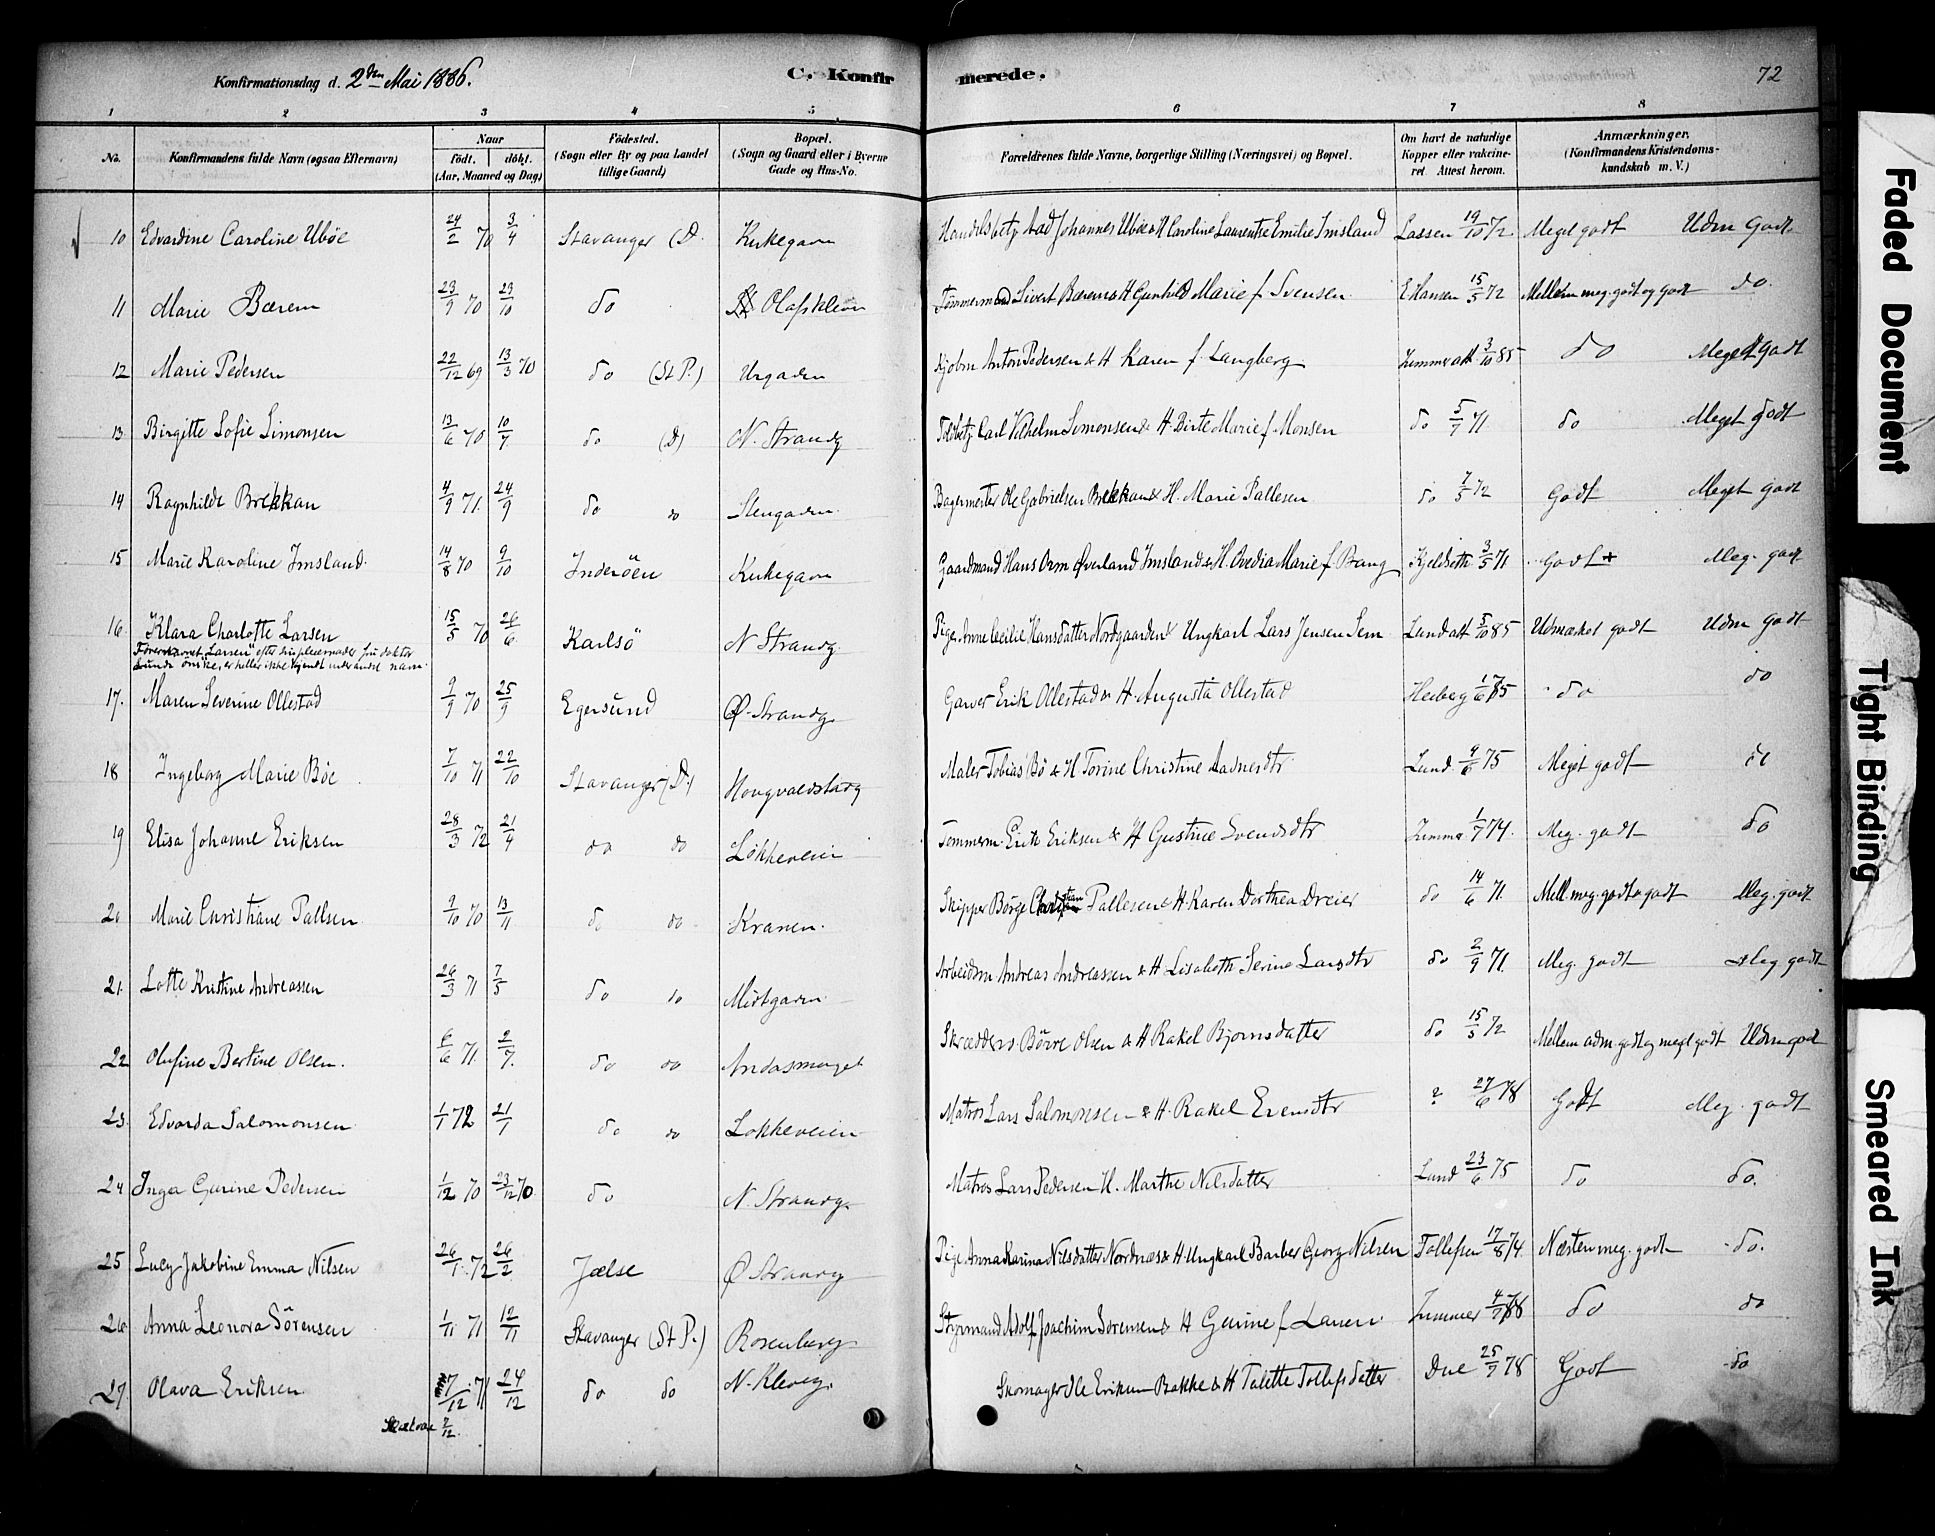 Konfirmationsdag d. 2den Mai 1886.
C. Konfirmerede.
72
1 2 3 4 5 6 7 8
No.
Konfirmandens fulde Navn (ogsaa Efternavn)
Naar født. døbt. (Aar, Maaned og Dag)
Fødested. (Sogn eller By og paa Landet tillige Gaard)
Bopæl. (Sogn og Gaard eller i Byerne Gade og Hus-No.
Forældrenes fulde Navne, borgerlige Stilling (Næringsvei) og Bopæl.
Om havt de naturlige Kopper eller vakcineret. Attest herom.
Anmærkninger. (Konfirmandens Kristendomskundskab m. V.)
10 Edvardine Caroline Uböe 24/2 70 3/4 Stavanger (D. Kirkegaen Johannes Uböe & H Caroline Laurentze Emilie Imsland Lassen 19/10 72. Meget godt Udm Godt.
11 Marie Bærem 23/9 70 23/10 do Olafskleven Tömmermand Sivert Bærem & H Gunhild Marie f. Svensen E Hansen 15/5 72 Mellem meg. godt og godt do.
12 Marie Pedersen 22/12 69 13/3 70 do (St P.) Urgaden Kjöbm Anton Pedersen & H Karen f. Langberg Zimmer att 3/10 85 do Meget godt
13 Birgitte Sofie Simonsen 13/6 70 10/7 do (D) N. Strandg Toldbetj. Carl Vilhelm Simonsen & H. Dirte Marie f. Monsen do 5/7 71 do Meget godt
14 Ragnhilde Brekkan 4/9 71. 24/9 do do Stengaden. Bagermester Ole Gabrielsen Brekkan & H. Marie Pallesen do 7/5 72 Godt Meget godt
15 Marie Karoline Imsland. 14/8 70 9/10 Inderöen Kirkegaen Gaardmand Hans Orm Øverland Imsland & H. Ovedia Marie f. Bang Kjeldseth 3/5 71 Godt + Meg. godt
16. Klara Charlotte Larsen 15/5 70 26/6. Karlsö N Strandg. Pige Anne Cecilie Hansdatter Nordgaarden & Ungkarl Lars Jensen Sem Lund att 5/10 85 Udmærket godt Udm godt
17. Maren Severine Ollestad 9/9 70 25/9 Egersund Ø. Strandg. Garver Erik Ollestad & H. Augusta Ollestad Heiberg 1/6 85 do do
18 Ingeborg Marie Böe 7/10 71 22/10 Stavanger (D.) Hougvaldstadg Maler Tobias Bö & H Torine Christine Aadnesdtr Lund 9/6 75 Meget godt
19 Elisa Johanne Eriksen 28/3 72 21/4 do do Lökkeveien Tömmerm. Erik Eriksen & H Gustine Svendsdtr Zimmer 1/7 74. Meg. godt do
20 Marie Christiane Pallsen 9/10 70 13/11 do do Kranen. Skipper Börge Christian Pallesen & H. Karen Dorthea Dreier do 14/6 71. Mell meg. godt o godt Meg. godt
21. Lotte Kristine Andreassen 26/3 71 7/5 do do Midtgaden Arbeidsm Andreas Andreassen & H Lisabeth Serine Larsdtr do 2/9 71. Meg. godt Meg godt
22 Olufine Bertine Olsen. 6/6 71 2/7. do do Andasmauget Skrædders. Börre Olsen & H Rakel Bjornsdatter do 15/5 72 Mellem udm godt og meget godt Udm godt
23. Edvarda Salomonsen 1/1 72 21/1 do do Lökkeveien Matros Lars Salomonsen & H. Rakel Evensdtr ? 27/6 78 Godt Meg. godt
24 Inga Gurine Pedersen 1/12 70 23/12 70. do N. Strandg. Matros Lars Pedersen H. Marthe Nilsdatter Lund 23/6 75 do do.
25 Lucy Jakobine Emma Nilsen 26/1. 72 26/2 Jælse Ø Strandg Pige Anna Karina Nilsdatter Nordnæs & H. Ungkarl Barber Georg Nilsen Tollefsen 17/8 74. Næsten meg. godt do.
26 Anna Leonora Sörensen 1/11 71 12/11 Stavanger (St P.) Rosenberg Styrmand Adolf Joachim Sörensen & H Gurine f. Lauen Zimmer do do
27. Olava Eriksen 7/12 71 24/12 do do N. Klevg. Skomager Ole Eriksen Bakke & H Talette Tollefsdatter Due 25/7 78 Godt do
2/12.
Faded Document
Tight Binding
Smeared Ink